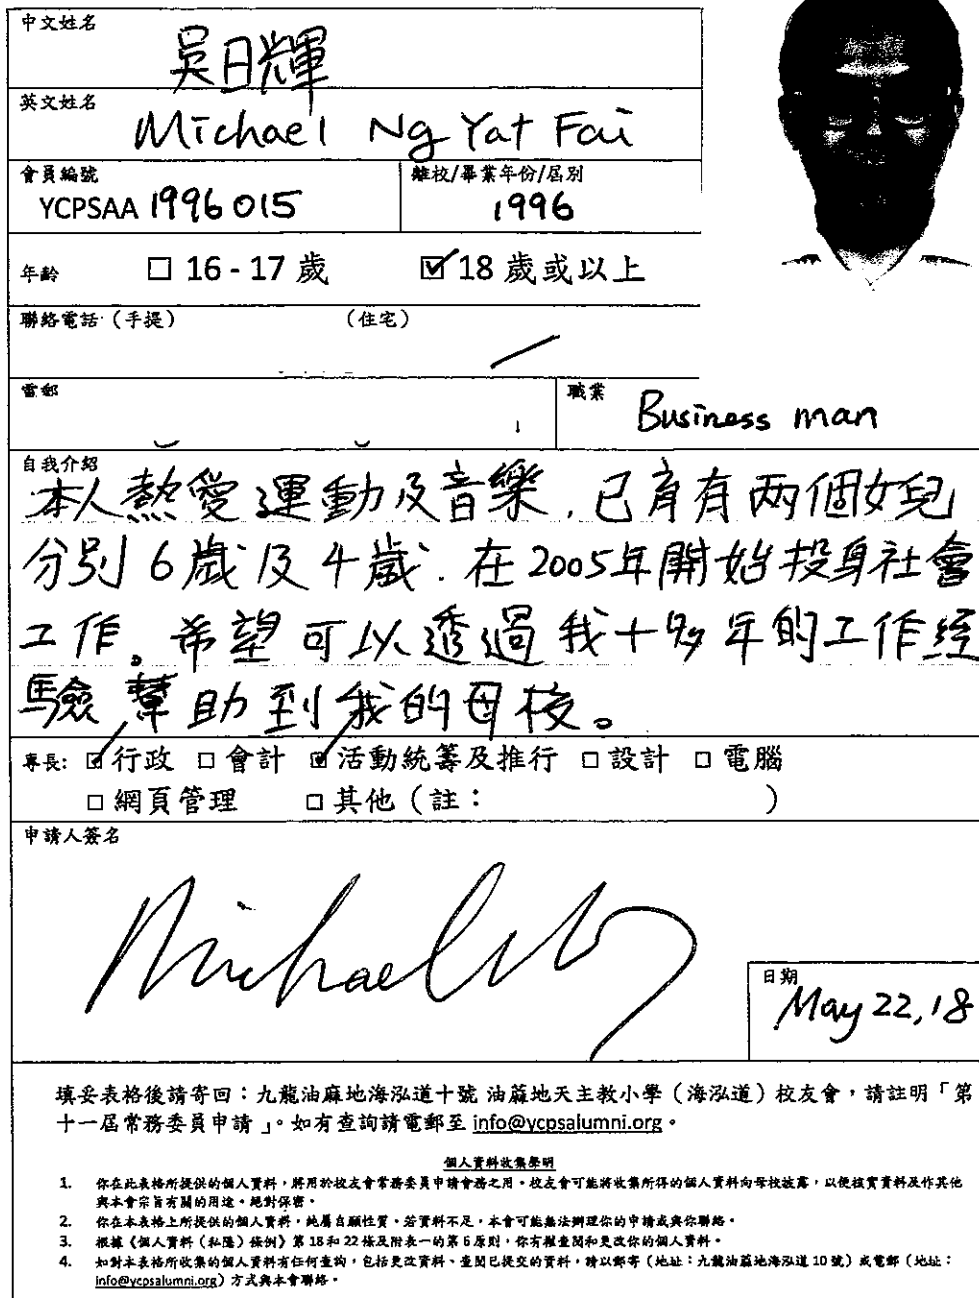 中文姓名
吳日輝
英文姓名
Michael Ng Yat Fai
會員編號
YCPSAA 1996015
離校/畢業年份/屆別
1996
年齡 □ 16 - 17 歲 ☑ 18 歲或以上
聯絡電話 (手提) (住宅)
電郵
職業
Business man
自我介紹
本人熱愛運動及音樂，已育有两個女兒
分別 6 歲及 4 歲. 在 2005年開始投身社會
工作。希望可以透過我十多年的工作經
驗幫助到我的母校。
專長: ☑ 行政 □ 會計 ☑ 活動統籌及推行 □ 設計 □ 電腦
□ 網頁管理 □ 其他 (註： )
申請人簽名
Michael Ng
日期
May 22, 18
填妥表格後請寄回：九龍油麻地海泓道十號 油蔴地天主教小學（海泓道）校友會，請註明「第
十一屆常務委員申請 」。如有查詢請電郵至 info@ycpsalumni.org。
個人資料收集聲明
1. 你在此表格所提供的個人資料，將用於校友會常務委員申請會務之用。校友會可能將收集所得的個人資料向母校披露，以便核實資料及作其他
與本會宗旨有關的用途。絕對保密。
2. 你在本表格上所提供的個人資料，純屬自願性質。若資料不足，本會可能無法辦理你的申請或與你聯絡。
3. 根據《個人資料（私隱）條例》第 18 和 22 條及附表一的第 6 原則，你有權查閱和更改你的個人資料。
4. 如對本表格所收集的個人資料有任何查詢，包括更改資料、查閱已提交的資料，請以郵寄（地址：九龍油蔴地海泓道 10 號）或電郵（地址：
info@ycpsalumni.org）方式與本會聯絡。